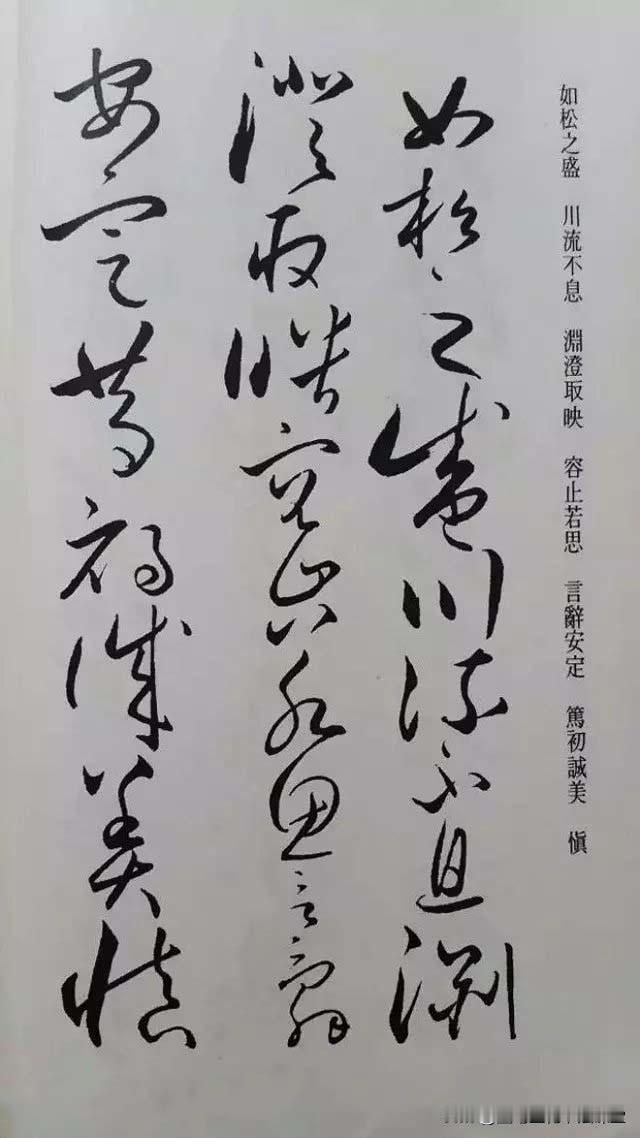 如松之盛 川流不息 淵澄取映 容止若思 言辭安定 篤初誠美 慎
如松之盛川流不息淵
澄取映容止若思言辭
安定篤初誠美慎